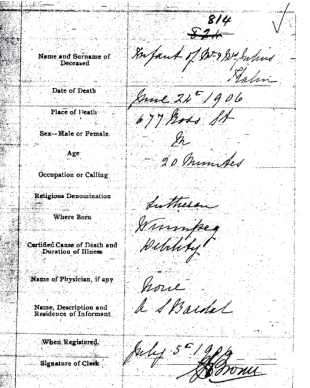 814
824
Name and Surname of Deceased Infant of Mr & Mrs Julius
Date of Death June 24th 1906
Place of Death 677 Ross St
Sex—Male or Female M
Age 20 Minutes
Occupation or Calling
Religious Denomination Lutheran
Where Born Winnipeg
Certified Cause of Death and Duration of Illness Debility
Name of Physician, if any None
Name, Description and Residence of Informant A S Bardal
When Registered July 5th 1906
Signature of Clerk